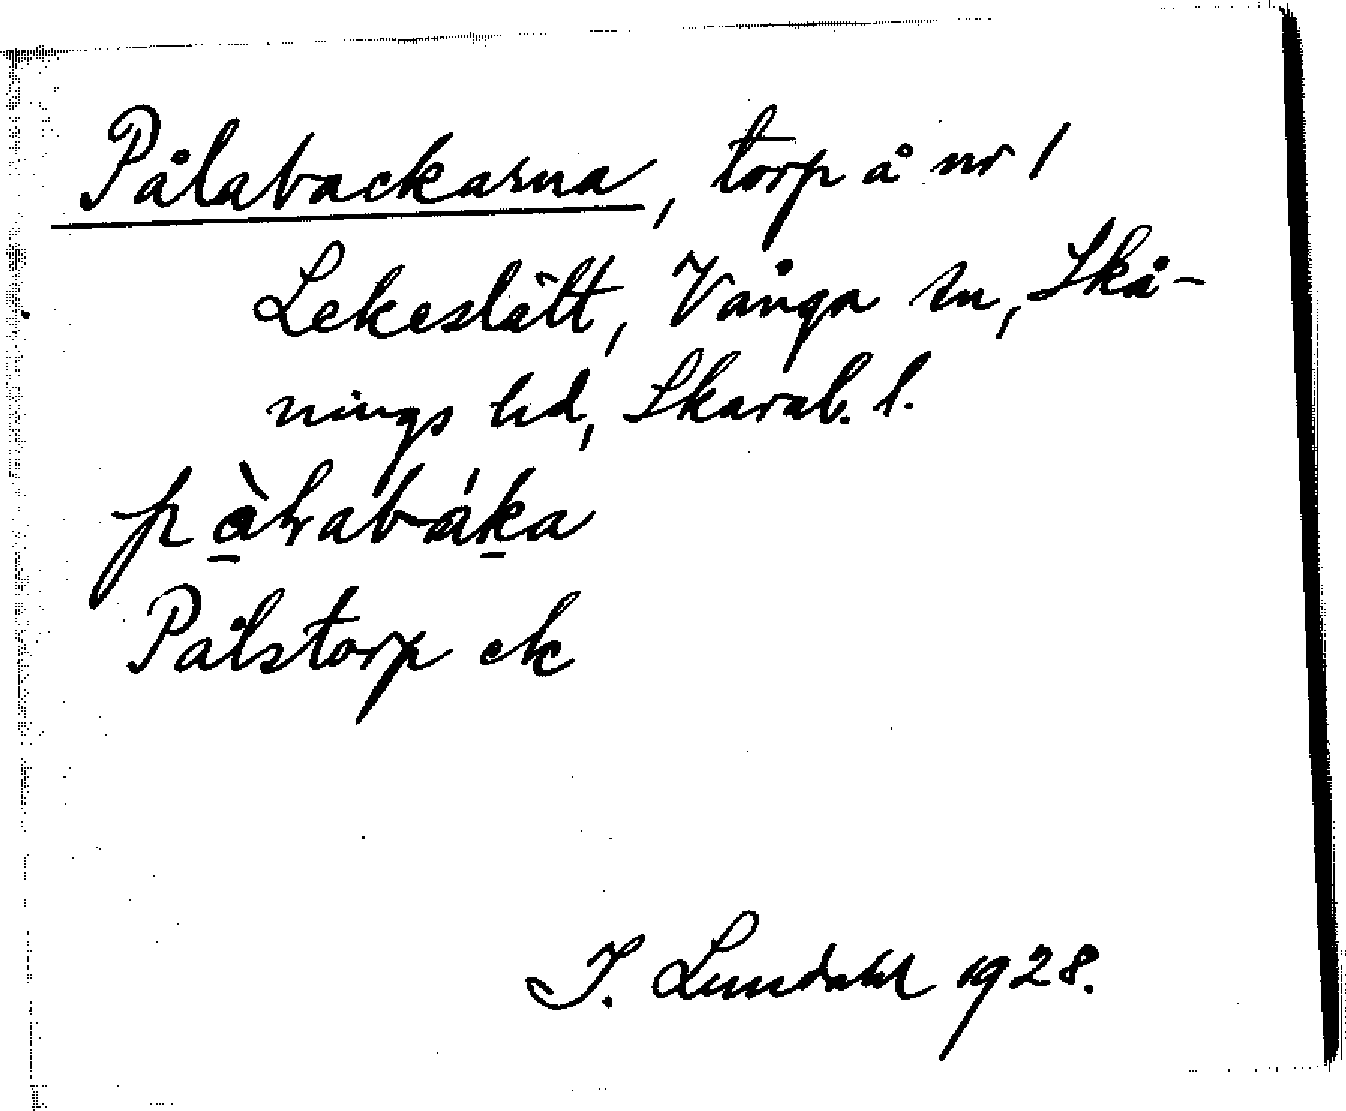 Pålabackarna, torp å nr 1
Lekeslätt, Vånga sn, Skå-
nings hd, Skarab. l.
pàlrabáka
Pålstorp ek
I. Lundahl 1928.